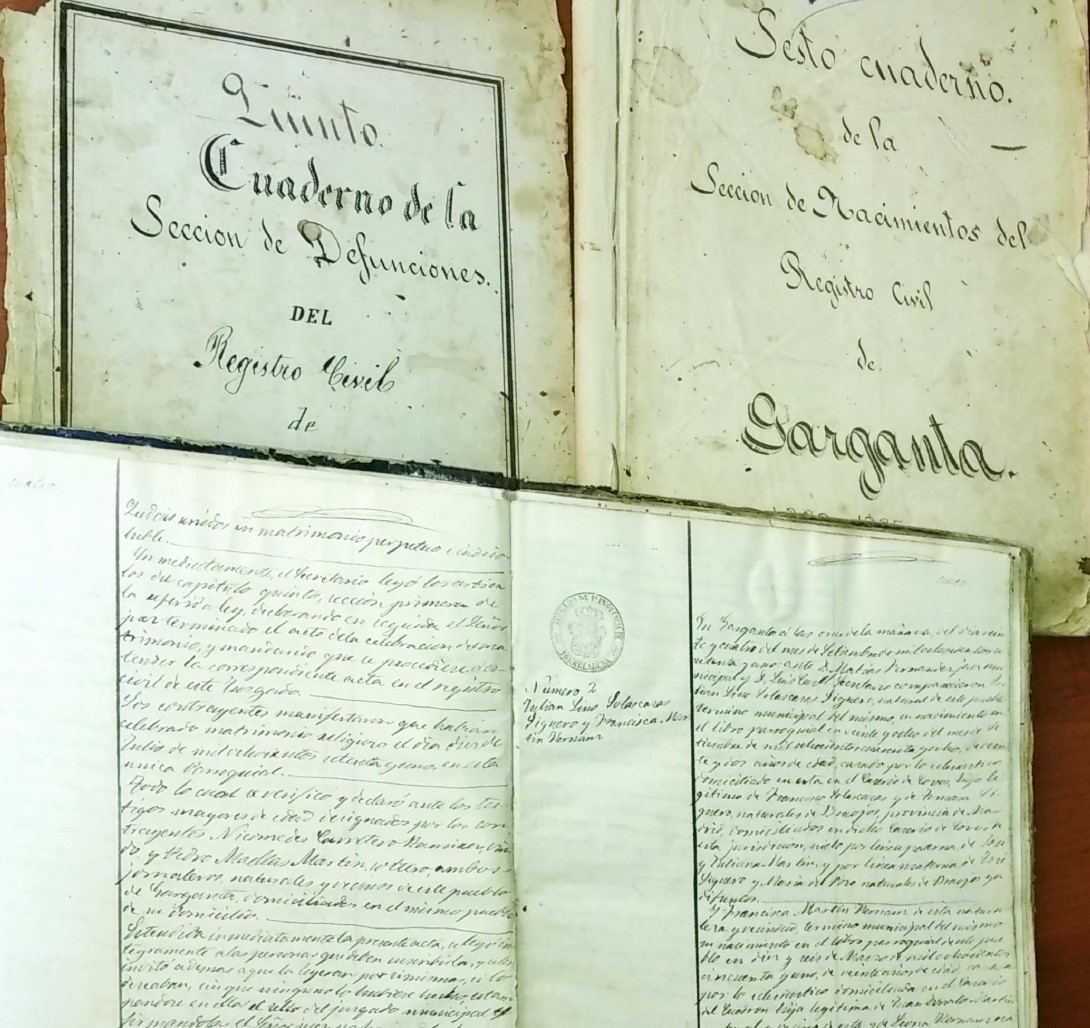 Quinto.
Cuaderno de la
Seccion de Defunciones.
DEL
Registro Civil
de
Sesto cuaderno.
de la
Seccion de Nacimientos del
Registro Civil
de
Garganta.
cuatro
Quedais unidos en matrimonio perpetuo é indiso-
luble.
Ynmediatamente, el Secretario leyó los artícu-
los del capítulo quinto, seccion primera de
la referida ley, declarando en seguida el Señor
por terminado el acto de la celebracion de ma-
trimonio, y mandando que se procediere á es-
tender la correspondiente acta en el registro
civil de este Juzgado.
Los contrayentes manifestaron que habian
celebrado matrimonio religioso el dia diez de
Julio de mil ochocientos setenta y uno, en esta
unica Parroquial.
Todo lo cual se verificó y declaró ante los tes-
tigos mayores de edad designados por los con-
trayentes Nicomedes Carretero Ramirez, viu-
do, y Pedro Madllas Martin, soltero, ambos
jornaleros, naturales y vecinos de este pueblo
de Garganta, domiciliados en el mismo pueblo
de su domicilio.
Estendida inmediatamente la presente acta, se leyó ín-
tegramente a las personas que deben suscribirla, y se les
invitó ademas a que la leyeran por si mismas, si lo
deseaban,
el sello del juzgado municipal
Número 2
Julian Lino Solascasas
Siguero y Francisca Mar-
tin Hernanz
En Garganta á las once de la mañana, del dia vein-
te y cuatro del mes de Setiembre de mil ochocientos se-
tenta y uno: ante D. Matias Hernandez, juez mu-
nicipal y D. Luis Secretario comparecieron Ju-
lian Lino Solascasas Siguero, natural de este pueblo
termino municipal del mismo, su nacimiento en
el libro parroquial en veinte y ocho del mes de Se-
tiembre de mil ochocientos cuarenta y ocho, de vein-
te y dos años de edad, casado por lo eclesiastico
domiciliado en esta en el hijo le-
gitimo de Francisco Solascasas y de Tomasa Si-
guero, naturales de Braojos, provincia de Ma-
drid, domiciliados en dicho
esta jurisdiccion, nieto por línea paterna de José
y Juliana Martin, y por línea materna de José
Siguero y Maria del Pozo naturales de Braojos ya
difuntos.
Y Francisca Martin Hernanz de esta natura-
leza y vecindad, termino municipal del mismo
su nacimiento en el libro parroquial de este pue-
blo en diez y seis de Marzo de mil ochocientos
cincuenta y uno, de veinte años de edad, casada
por lo eclesiastico domiciliada en el
hija legitima de Martin
Hernanz